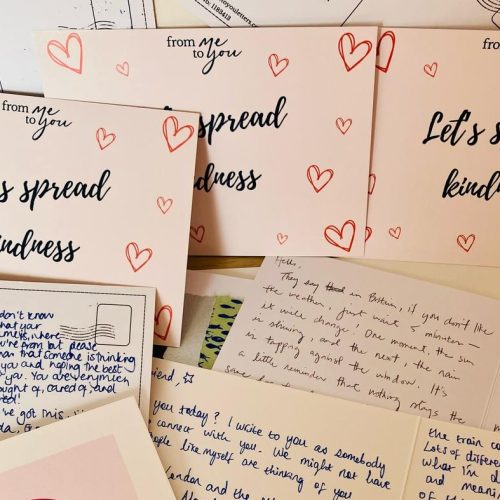 oyouletters.com
No. 1183413
from me
to you
spread
kindness
from me
to you
s spread
indness
from
Let's s
kindn
Hello,
They say in Britain, if you don't like
the weather, just wait 5 minutes
it will change! One moment, the sun
is shining, and the next, the rain
is tapping against the window. It's
a little reminder that nothing stays the
don't know
what your
where
you're from but please
that someone is thinking
you and hoping the best
you. You are very much
thought of, cared of, and
've got this,
friend, ☆
you today? I write to you as somebody
connect with you. We might not have
people like myself are thinking of you
London and the
the train co
Lots of differen
what I'm d
and mean
of thi